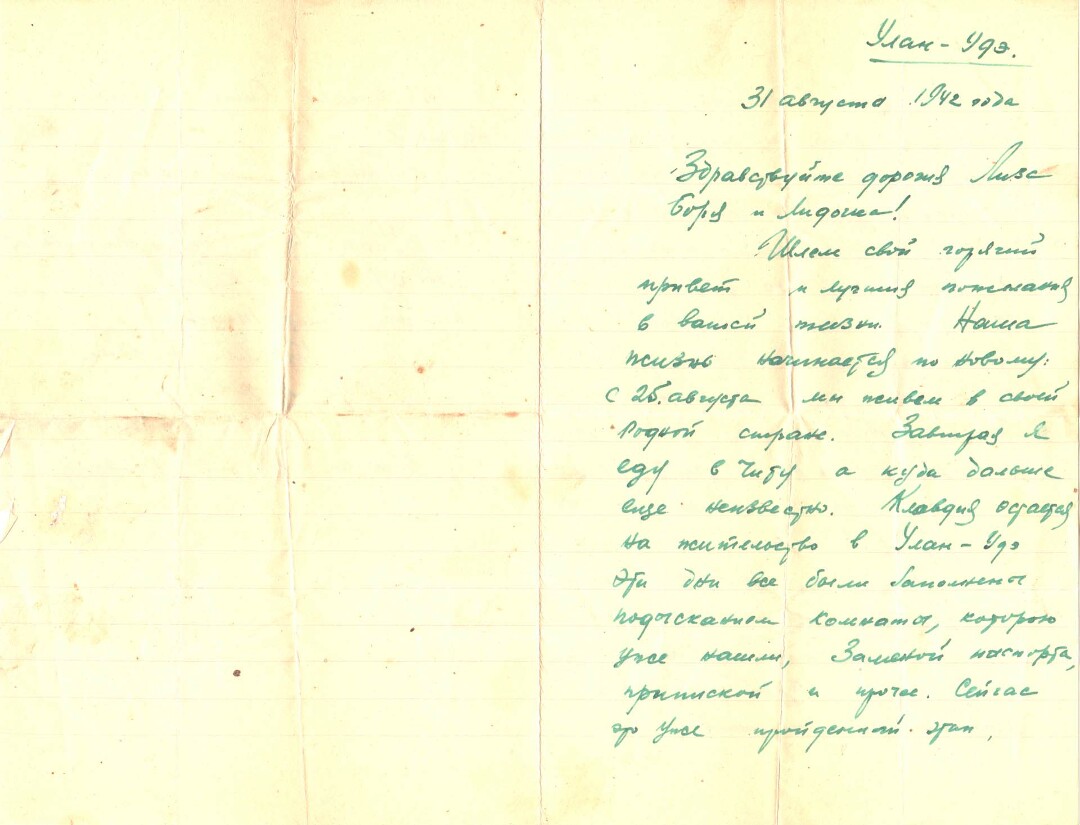 Улан-Удэ.
31 августа 1942 года
Здравствуйте дорогия Лиза
Боря и Лидочка!
Шлем свой горячий
привет и лучшия пожелания
в вашей жизни. Наша
жизнь начинается по новому:
с 25. августа мы живем в своей
родной стране. Завтра я
еду в Читу а куда дальше
еще неизвестно. Клавдия остается
на жительство в Улан-Удэ
Эти дни все были заполнены
подысканием комнаты, которою
уже нашли, Заменой паспорта,
припиской и прочее. Сейчас
это уже пройденный этап,